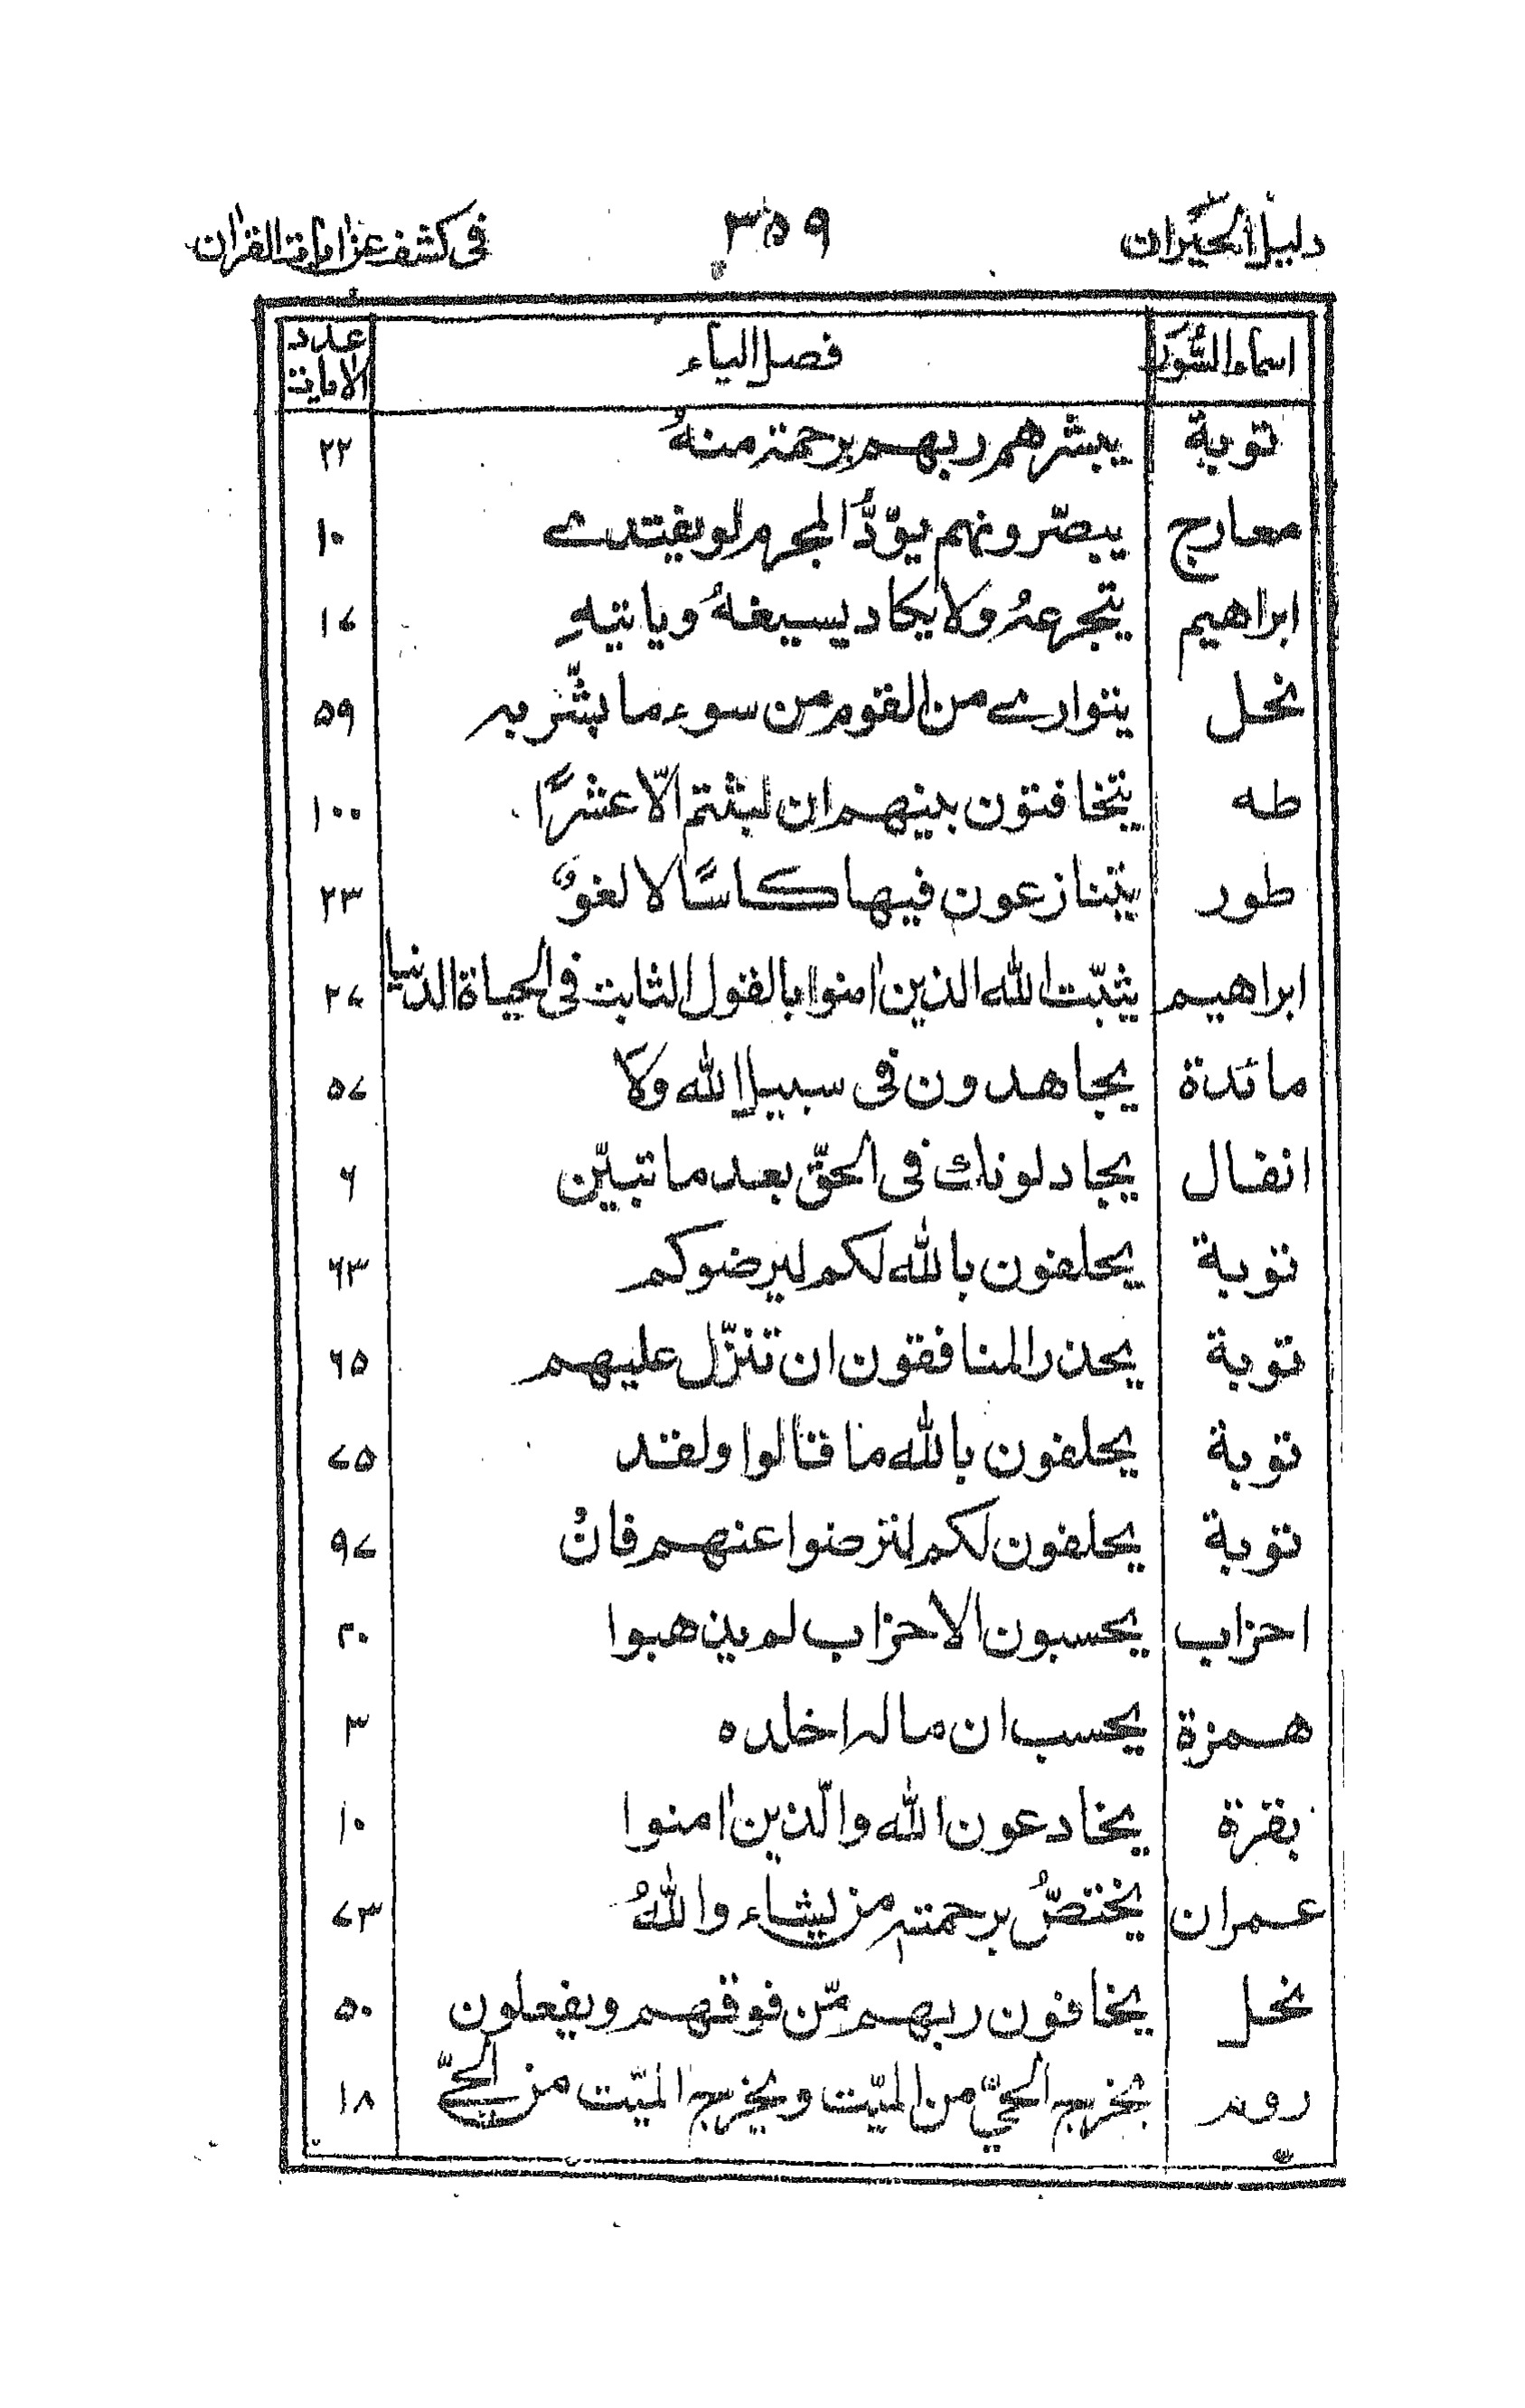 دليل الحَيران ٣٥٩ فى كشف عن اٰيات القراٰن
اسماء السُّوَر فصل الياء عدد الاٰيات
توبة يبشرهم ربهم برحمة منهُ ٢٢
معارج يبصّرونهم يوّدُّ المجرم لو يفتدے ١٠
ابراهيم يتجرعهُ ولا يكاد يسيغهُ وياتيهِ ١٧
نحل يتوارے من القوم من سوء ما بشّر به ٥٩
طه يتخافتون بينهم ان لبثتم الّا عشرًا ١٠٠
طور يتنازعون فيها كاسًا لا لغوٌ ٢٣
ابراهيم يثبّت الله الذين اٰمنوا بالقول الثابت فى الحياة الدنيا ٢٧
مائدة يجاهدون فى سبيل الله ولا ٥٧
انفال يجادلونك فى الحقّ بعد ما تبيّن ٦
توبة يحلفون بالله لكم ليرضوكم ٦٣
توبة يحذر المنافقون ان تنزّل عليهم ٦٥
توبة يحلفون بالله ما قالوا ولقد ٧٥
توبة يحلفون لكم لترضوا عنهم فانْ ٩٧
احزاب يحسبون الاحزاب لم يذهبوا ٢٠
همزة يحسب ان ماله اخلده ٣
بقرة يخادعون الله والّذين اٰمنوا ١٠
عمران يختصُّ برحمته من يشاء واللهُ ٧٣
نحل يخافون ربهم مّن فوقهم ويفعلون ٥٠
روم يخرج الحىّ من الميّت ويخرج الميّت من الحىّ ١٨